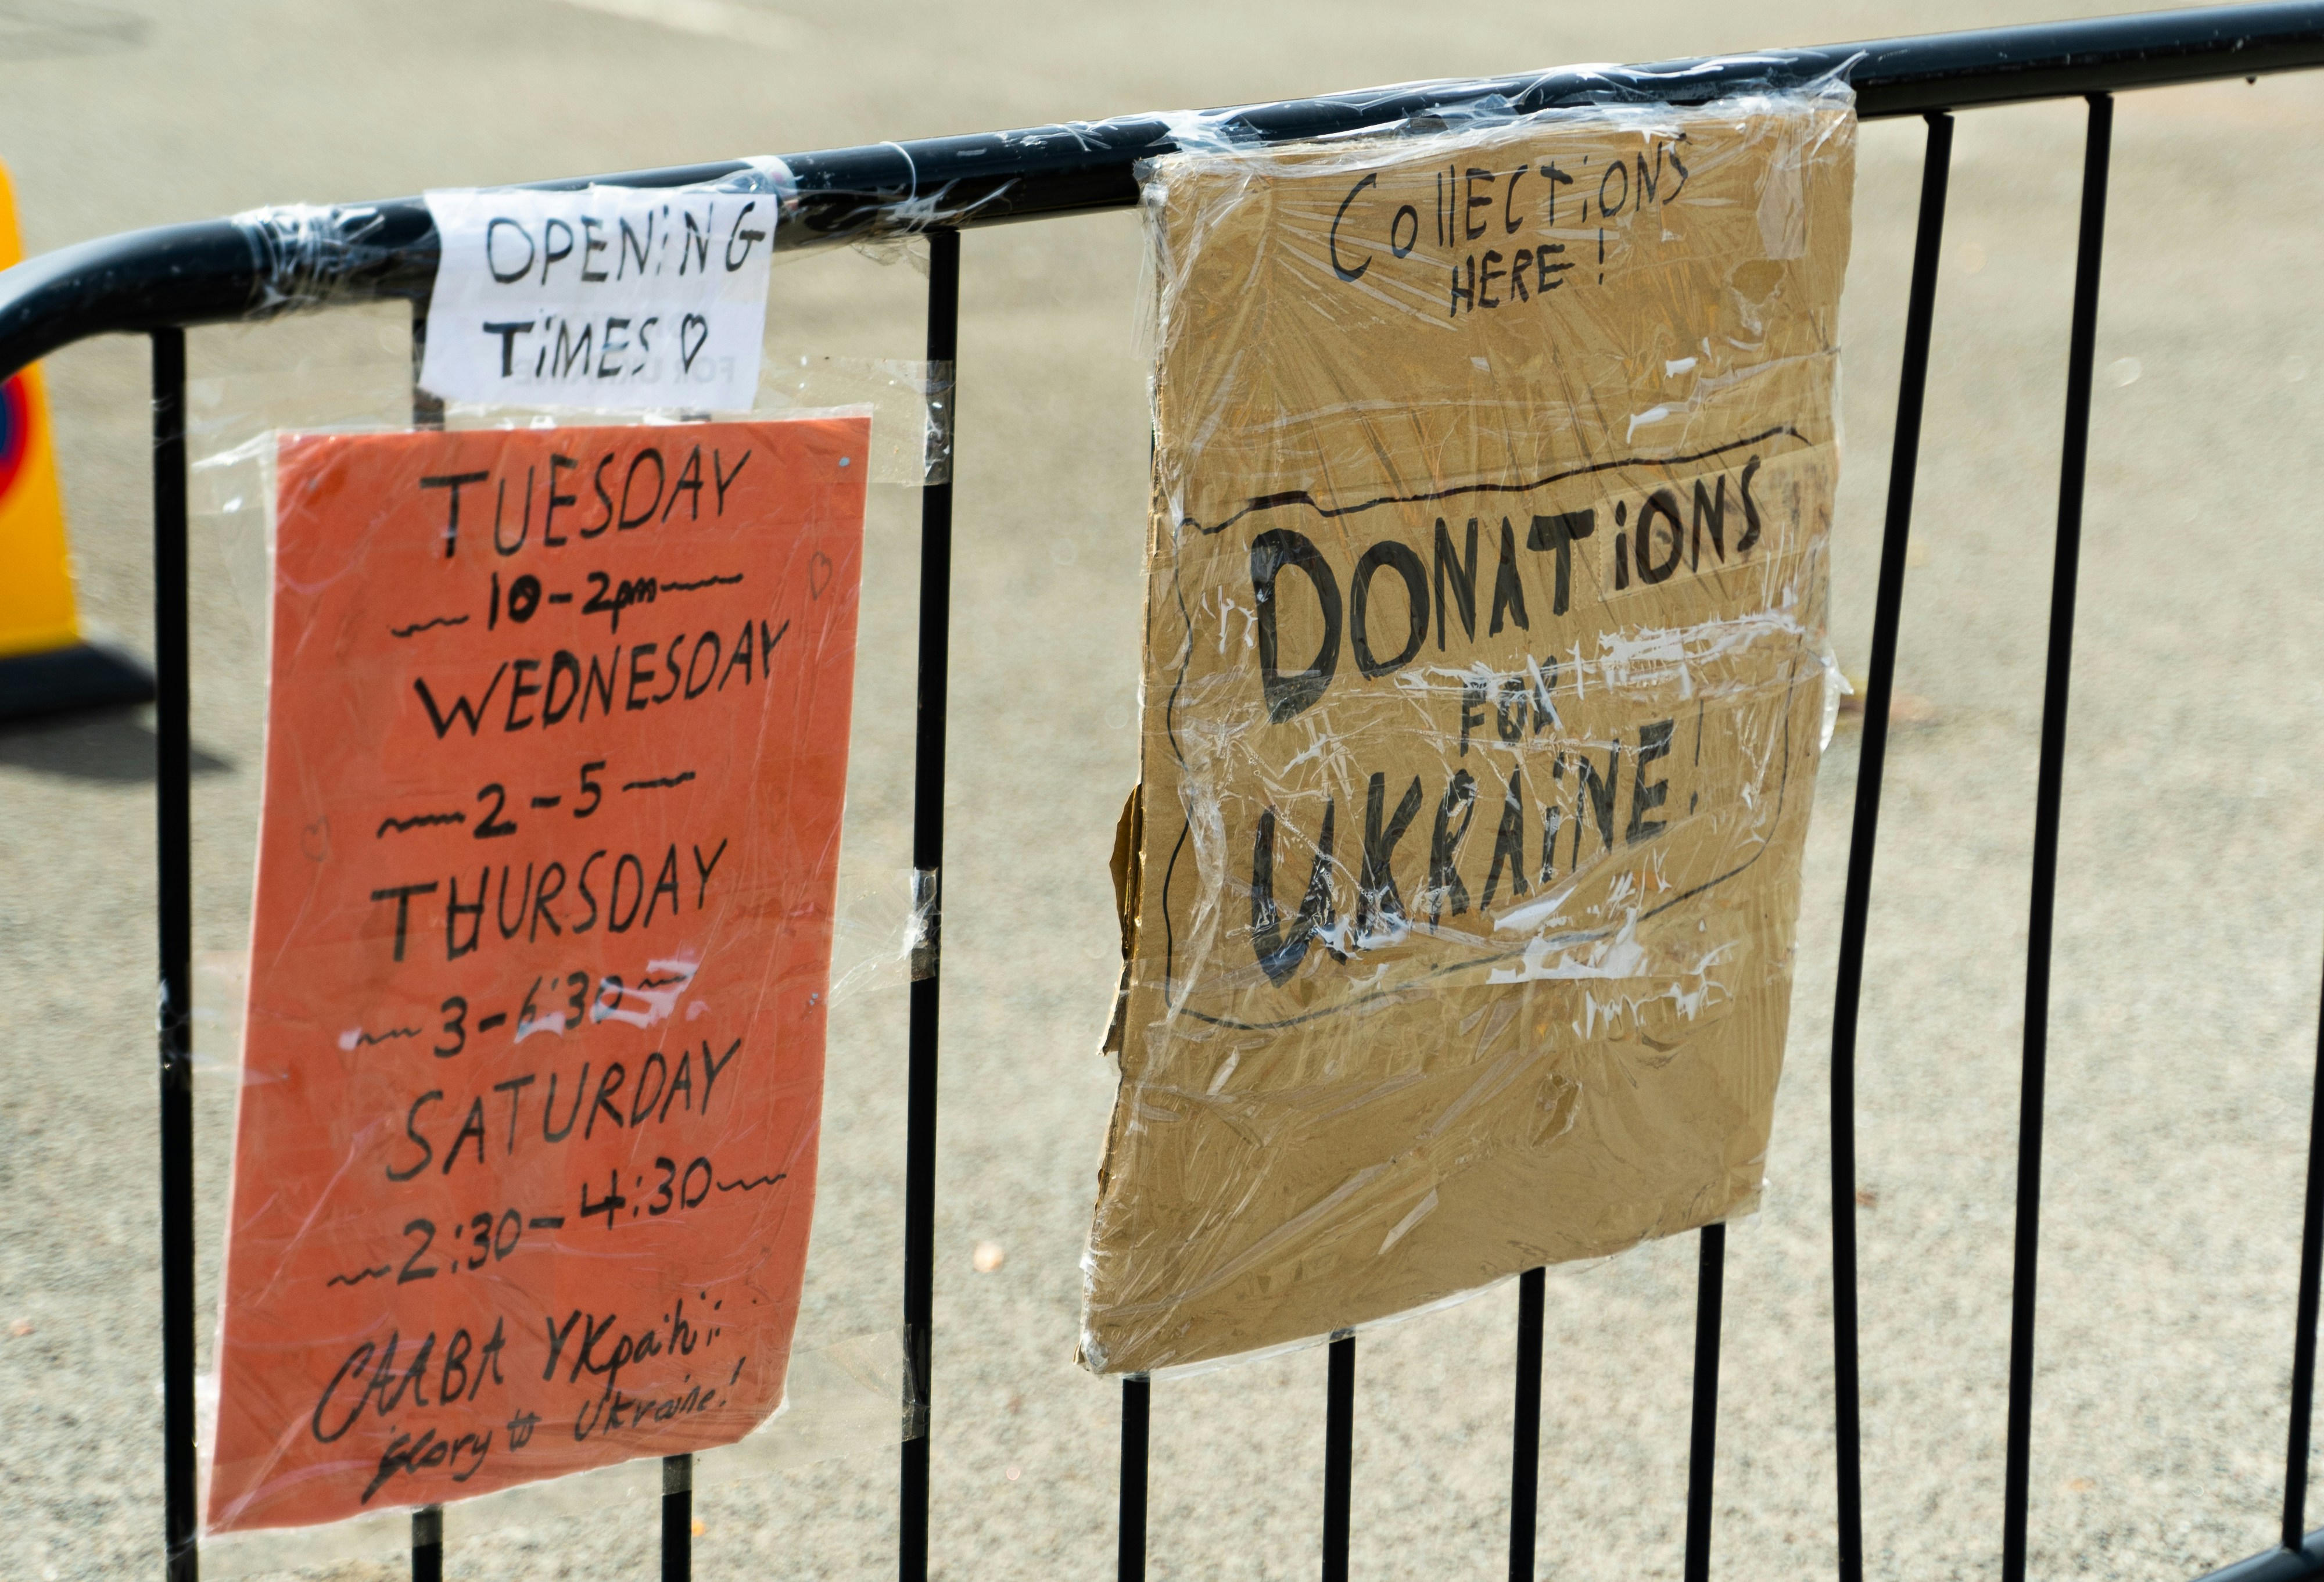 OPENiNG
TiMES ♡
TUESDAY
10-2pm
WEDNESDAY
2-5
THURSDAY
3-6:30
SATURDAY
2:30-4:30
СЛАВА УКраїні
glory to Ukraine!
CollECTiONS
HERE!
DONATiONS
FOR
UKRAiNE!